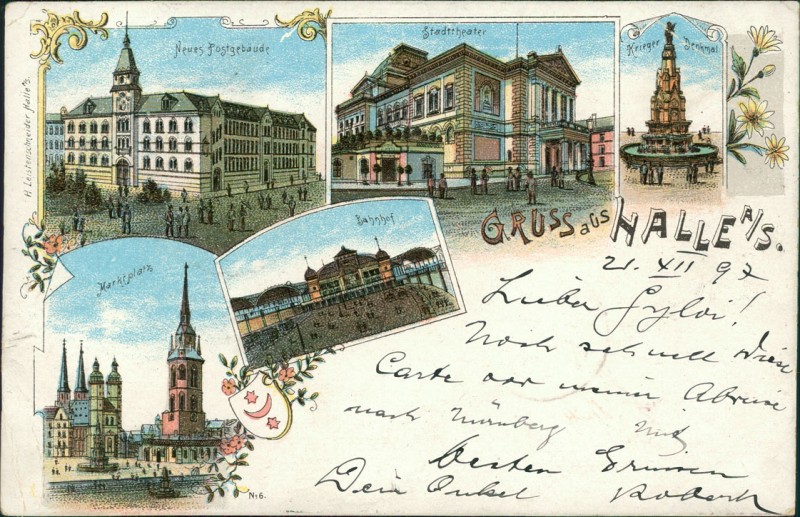 Neues Postgebäude
Stadttheater
Krieger Denkmal
H. Leistenschneider Halle a/s.
Bahnhof
GRUSS aus HALLE A/S.
Marktplatz
21. XII 97
Lieber !
Noch schnell diese
Carte vor meiner Abreise
nach Nürnberg Mit
besten Grüssen
Dein Onkel Robert
No 6.